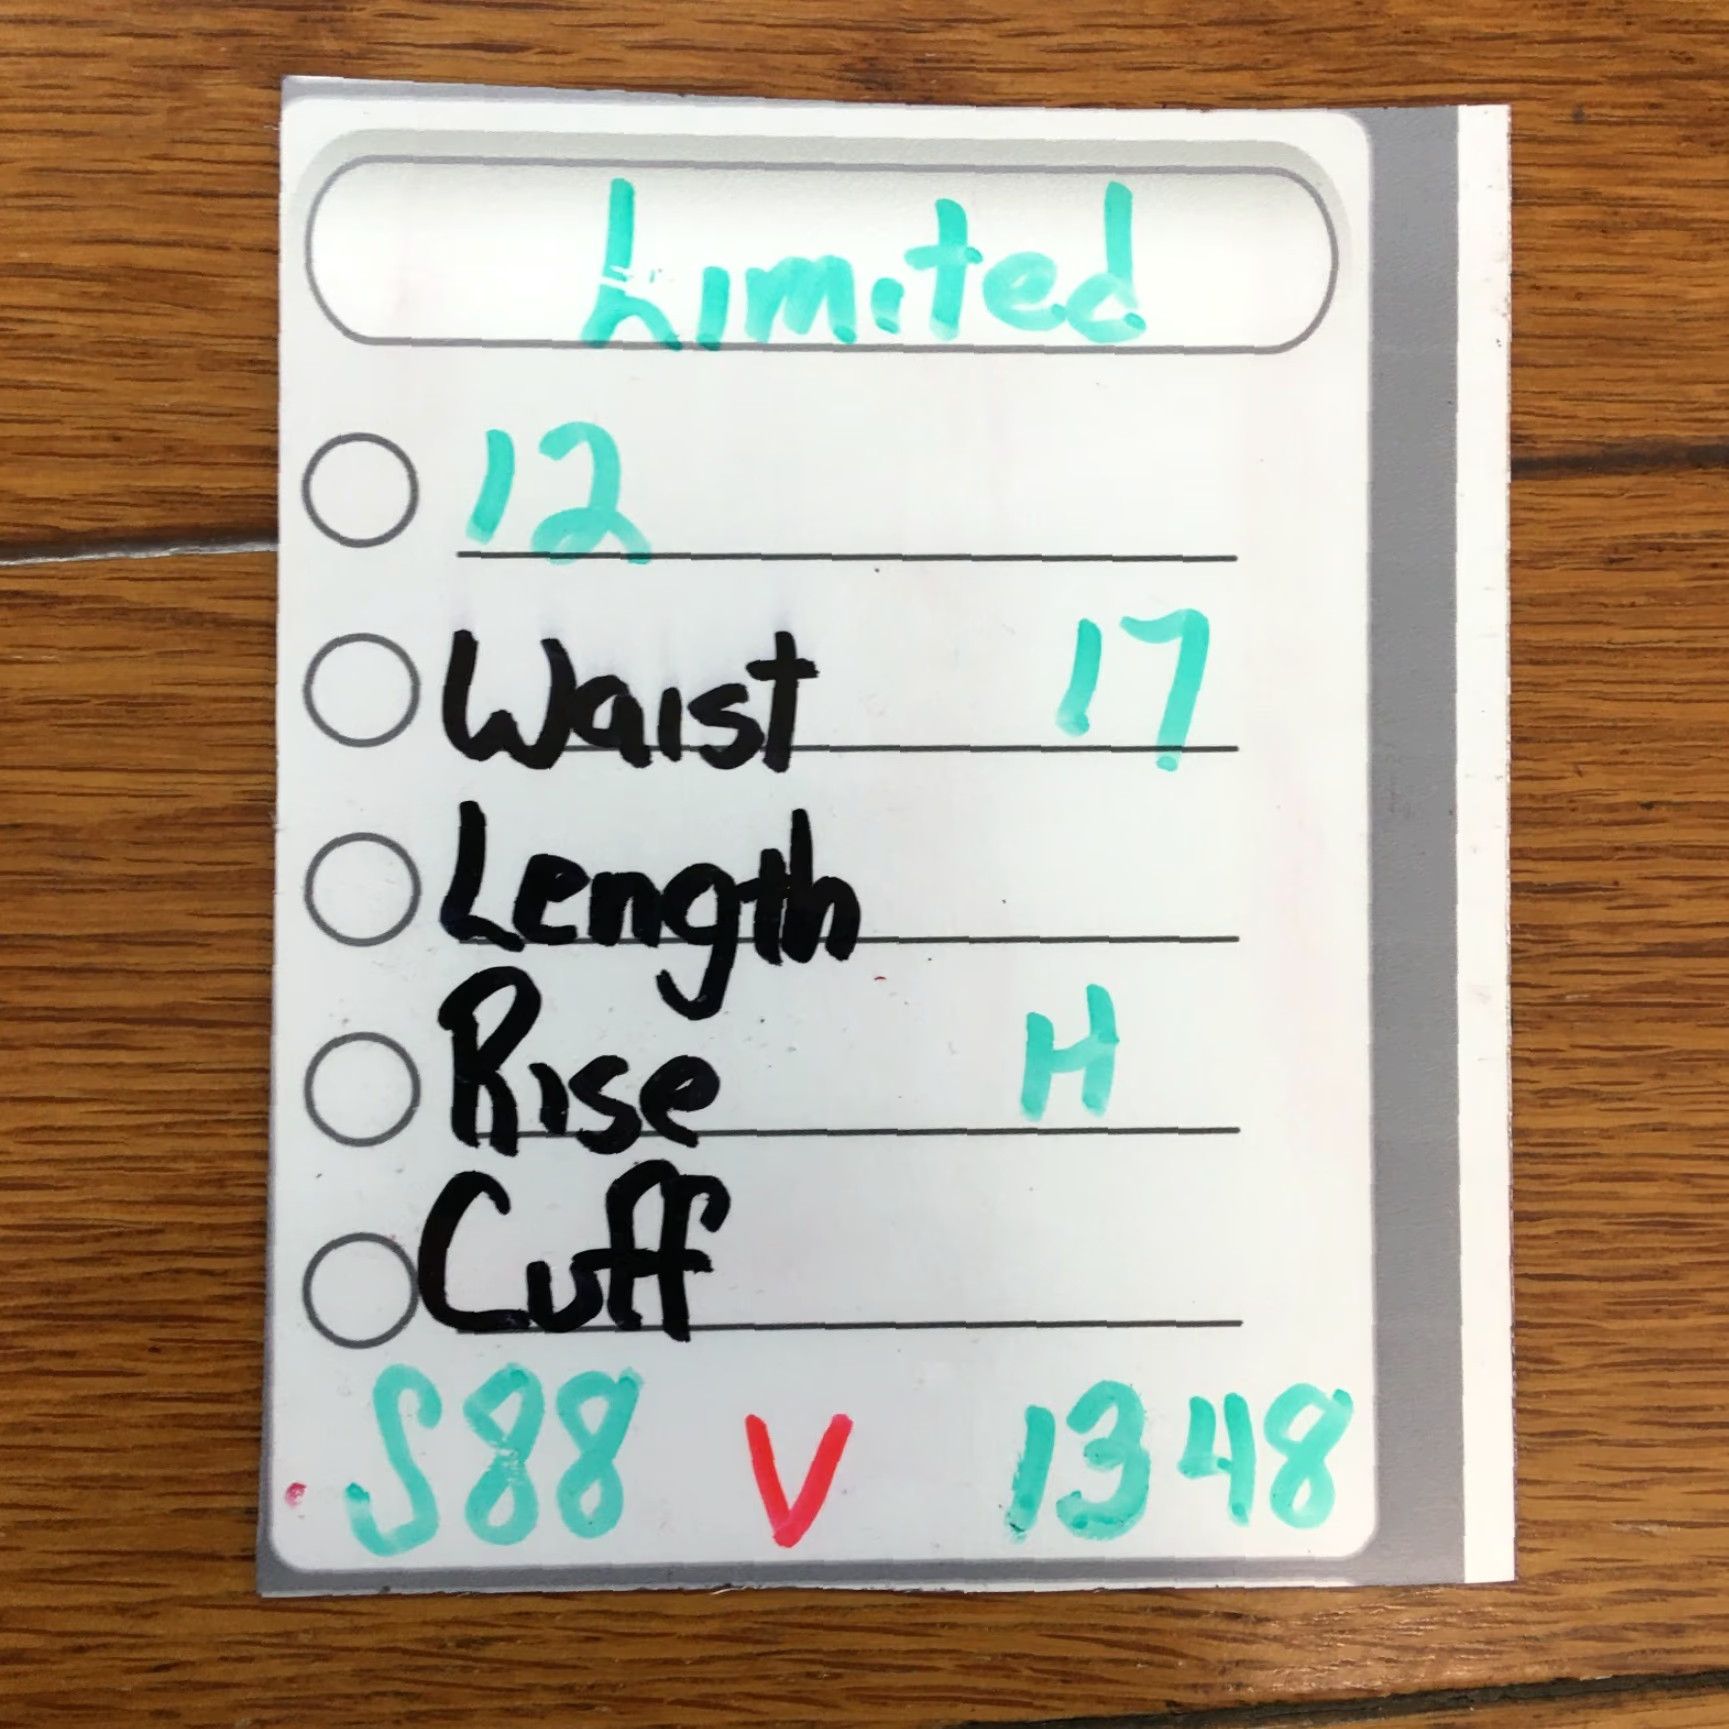 Limited
12
Waist 17
Length
Rise H
Cuff
S88 V 1348